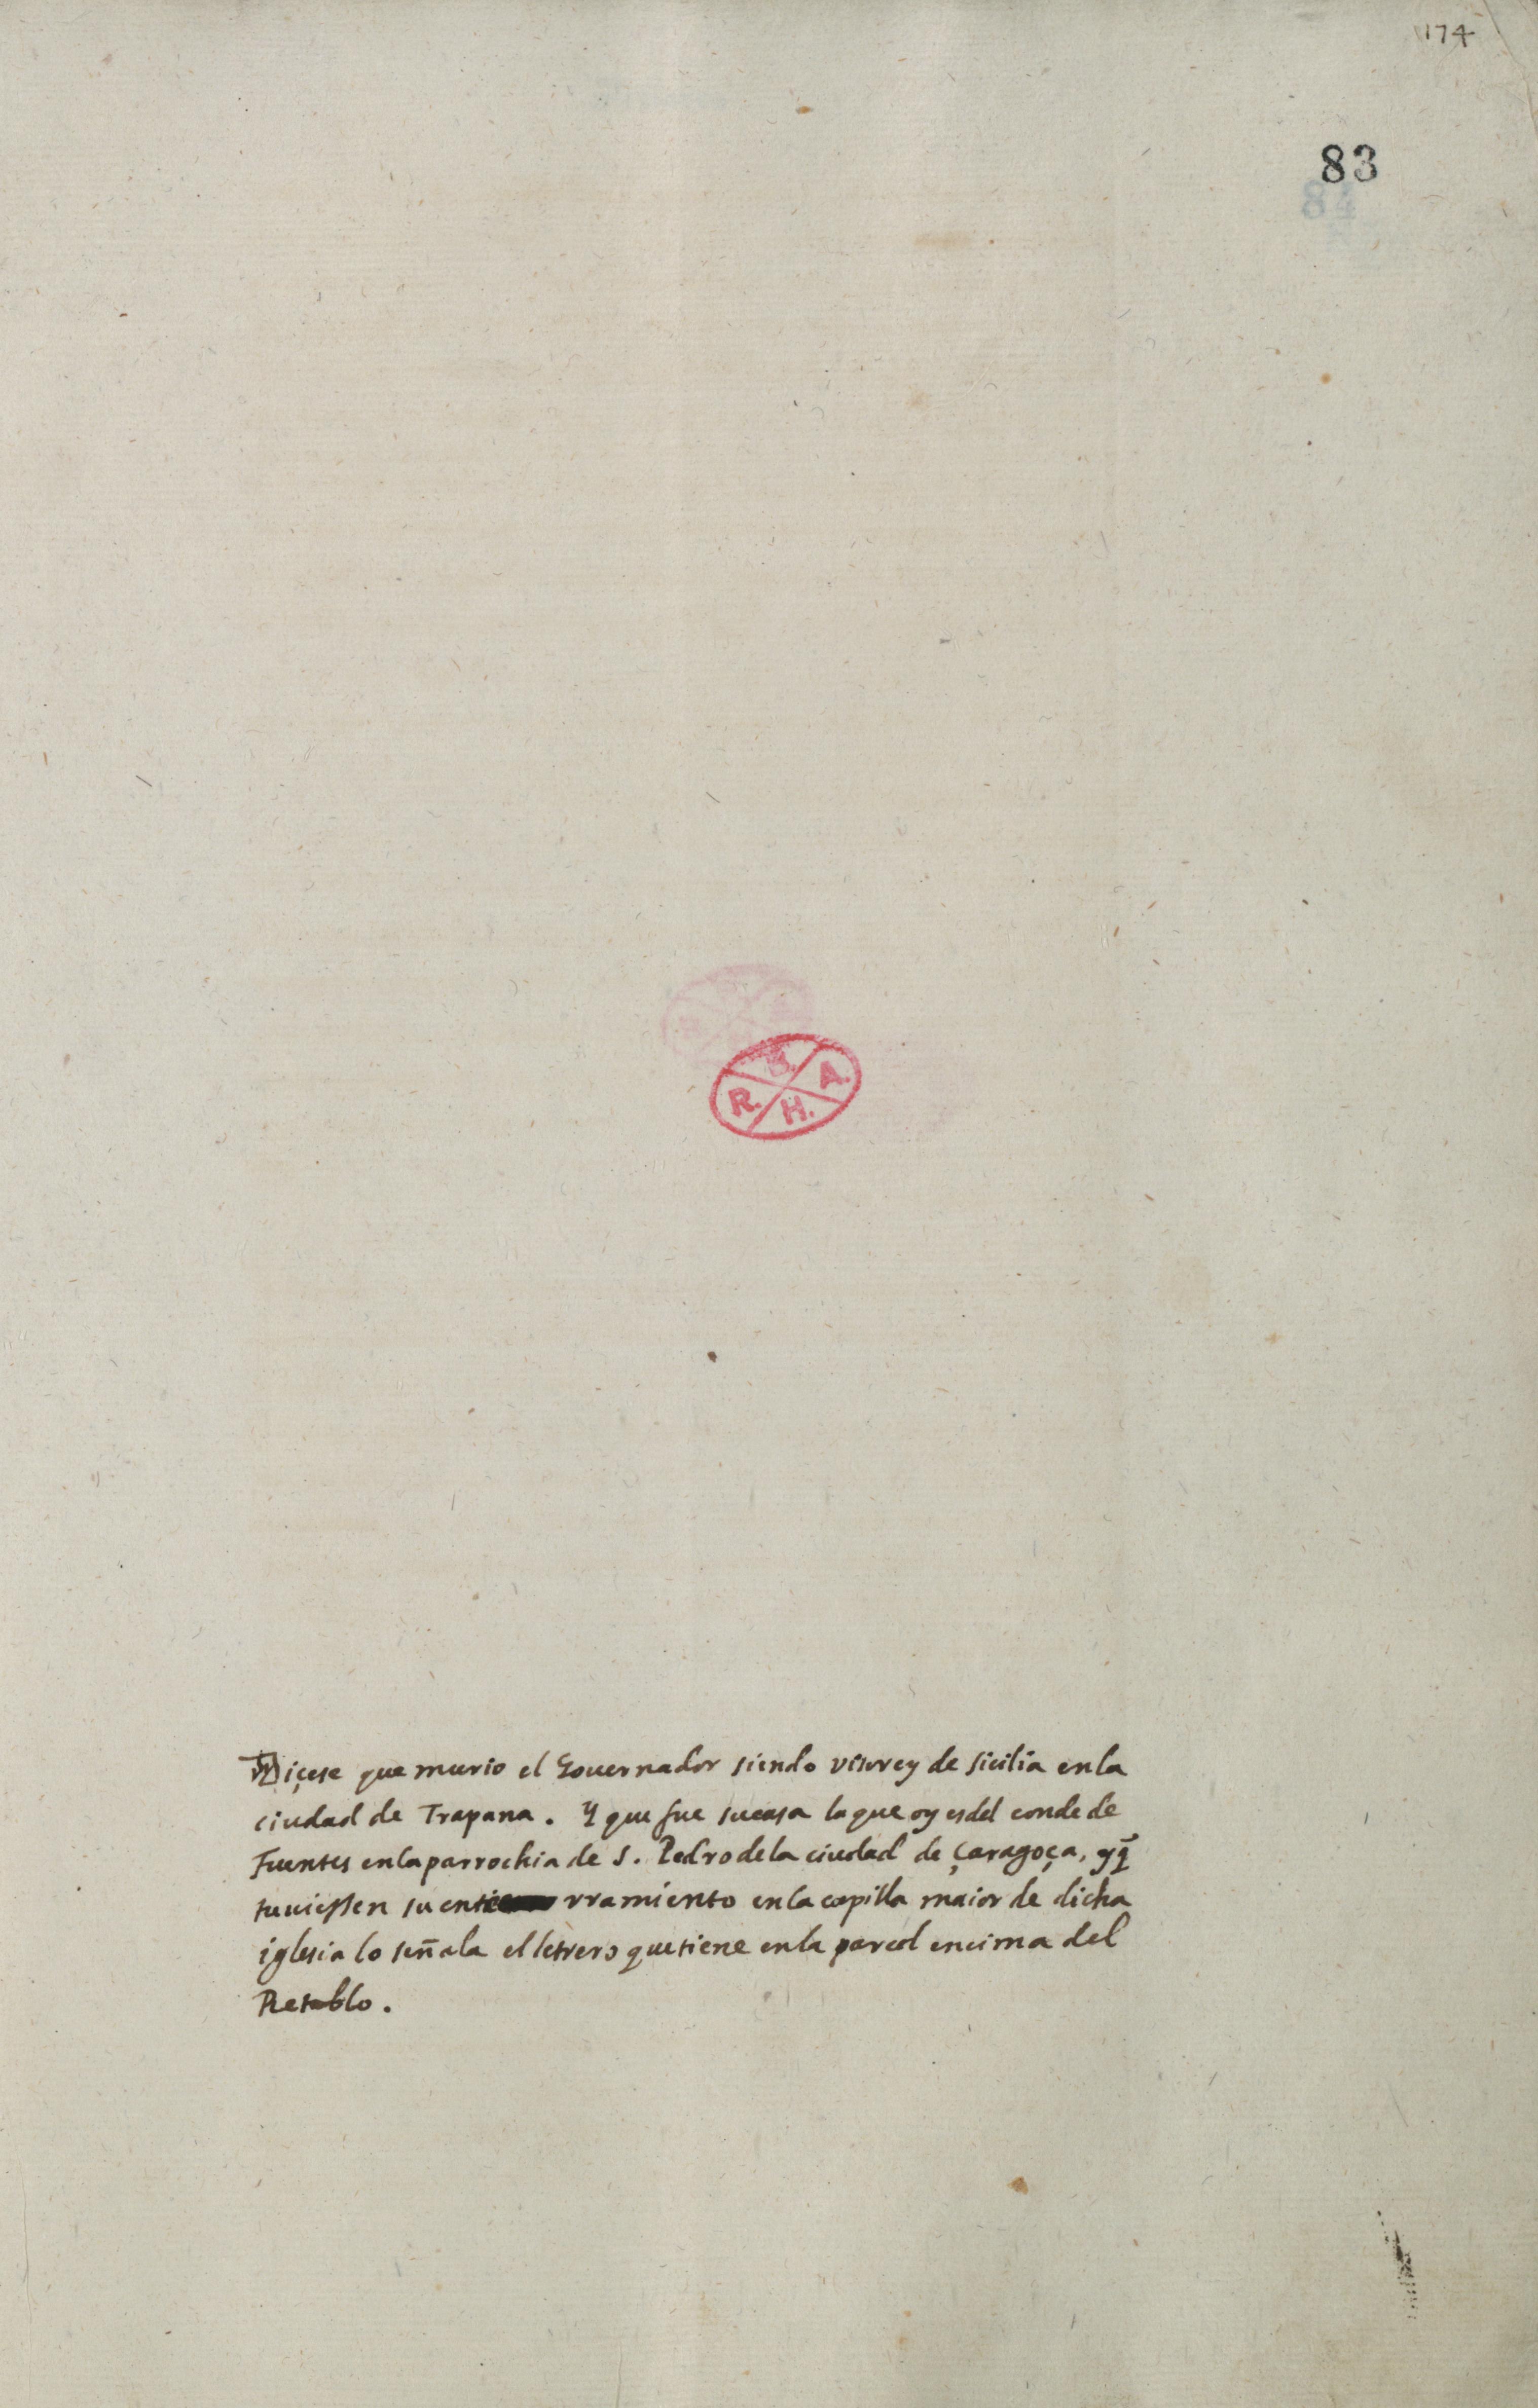 174
83
84
B.
R. A.
H.
Diçese que murio el Gouernador siendo visorey de sicilia en la
ciudad de Trapana. Y que fue su casa la que oy es del conde de
Fuentes en la parrochia de S. Pedro de la ciudad de Çaragoça, y q̃
tuuiessen su ente rramiento en la capilla maior de dicha
iglesia lo señala el letrero que tiene en la pared encima del
Retablo.